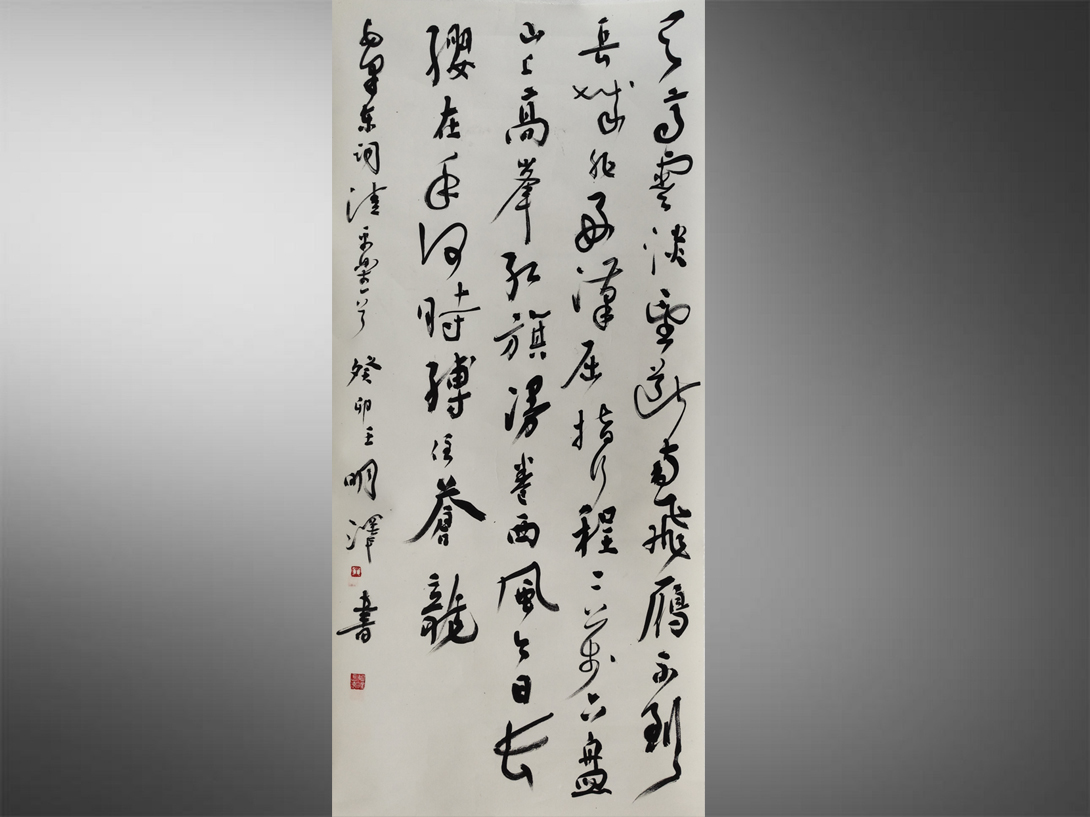 天高雲淡望斷南飛雁不到
長城非好漢屈指行程二萬六盤
山上高峯紅旗漫卷西風今日长
纓在手何時縛住蒼龍
毛澤東詞清平樂一首 癸卯王明澤書